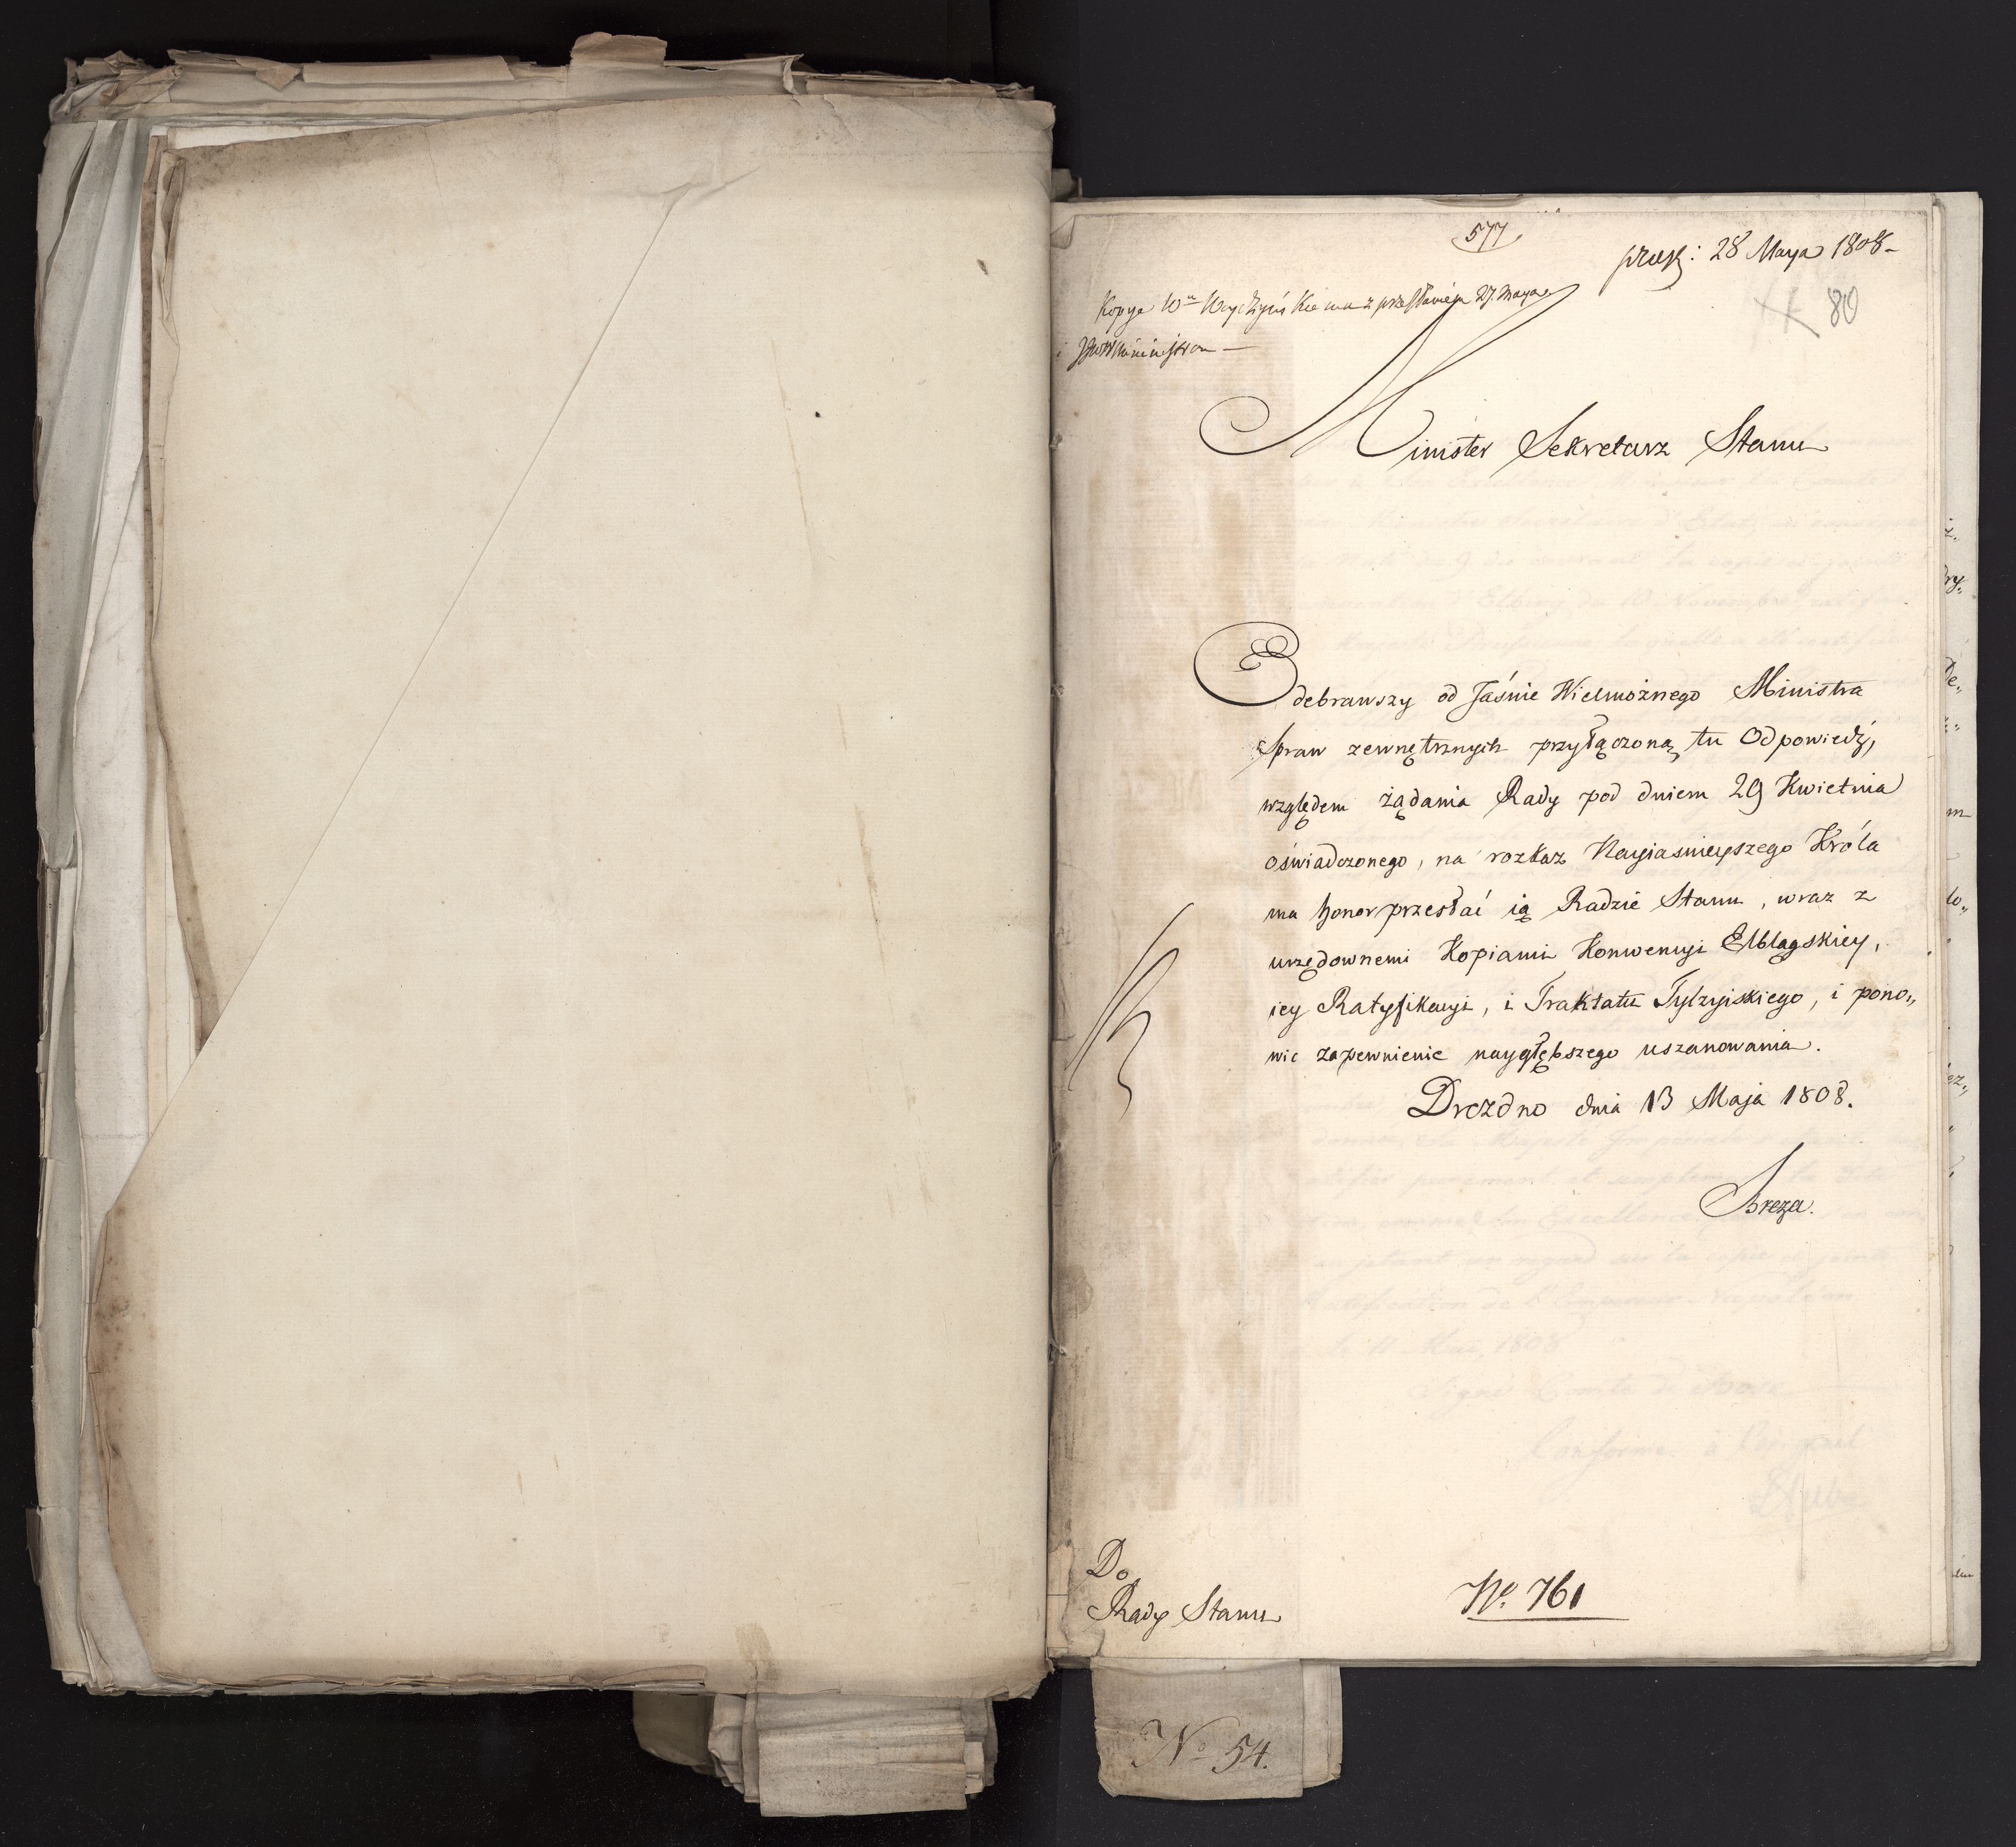 577
28 Maya 1808
80
Kopya Wu z przesłaniem 27. Maya
i
Minister Sekretarz Stanu
Odebrawszy od Jaśnie Wielmożnego Ministra
Spraw zewnętrznych przyłączoną tu Odpowiedź,
względem żądania Rady pod dniem 29 Kwietnia
oświadczonego, na rozkaz Nayiasnieyszego Króla
ma honor przesłać ią Radzie Stanu, wraz z
urzędownemi Kopiami Konwencyi Elblągskiey,
iey Ratyfikacyi, i Traktatu Tylzyiskiego, i pono„
wić zapewnienie naygłębszego uszanowania.
Drezdno dnia 13 Maja 1808.
Breza.
Do
Rady Stanu
No. 761
No 54.